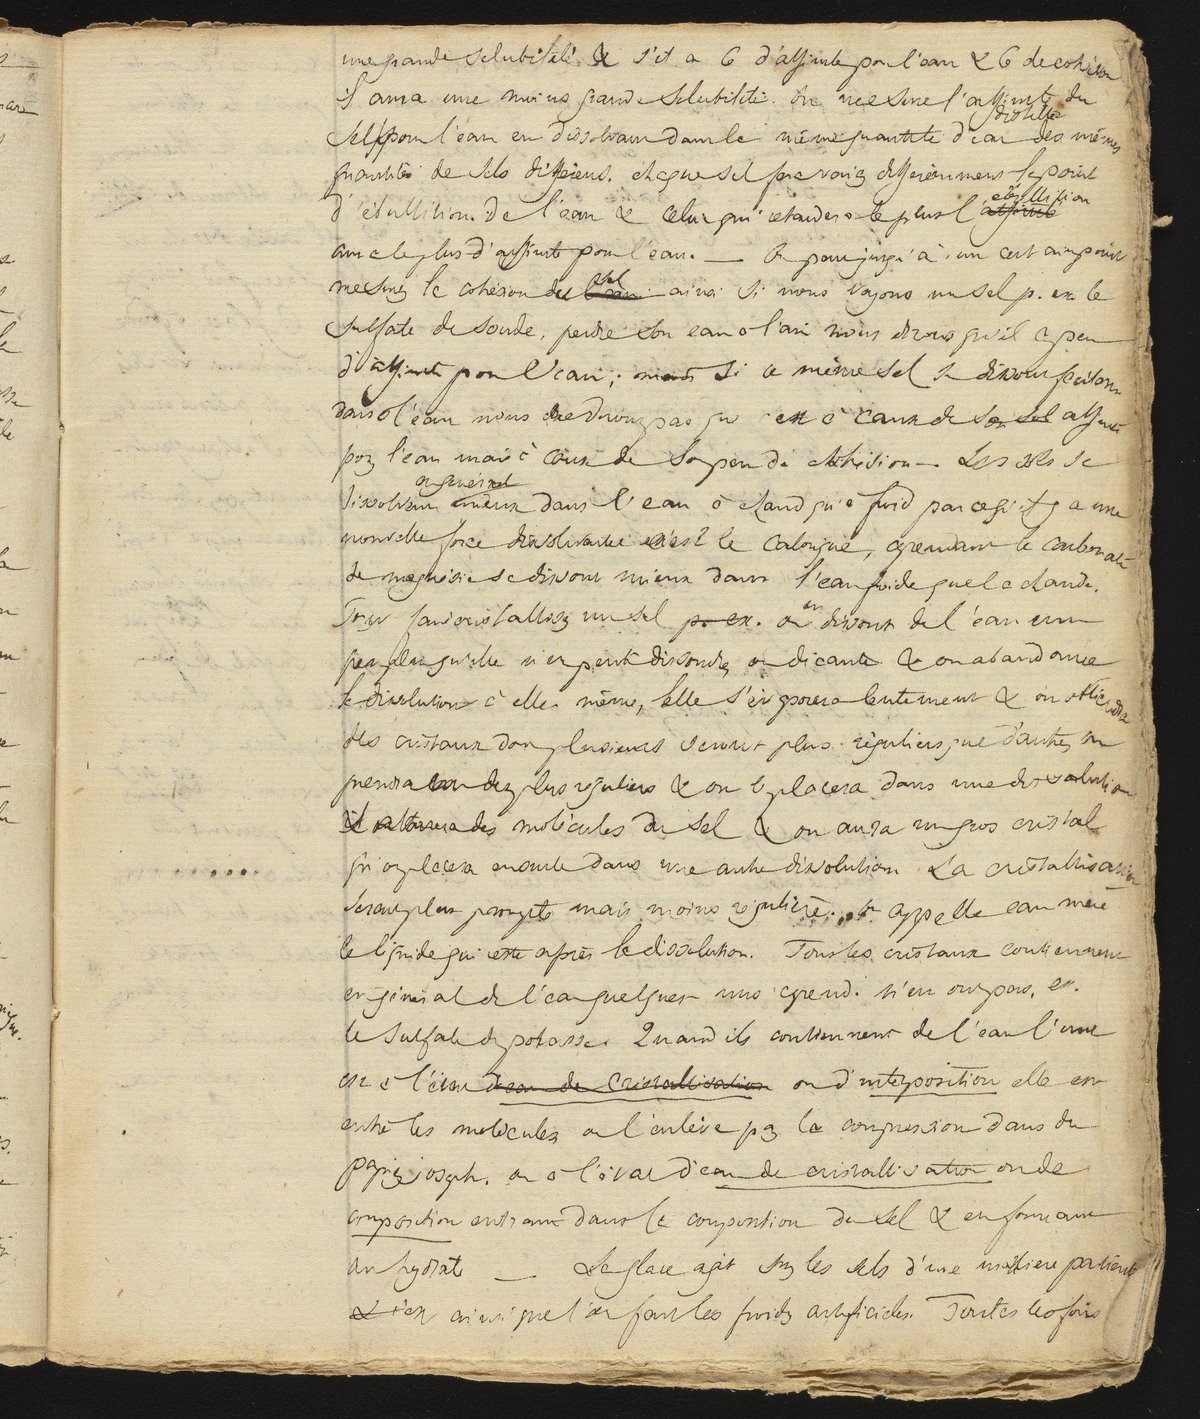 une grande solubilité & s'il a 6 d'affinité pour l'eau & 6 de cohésion
il aura une moins grande solubilité. On mesure l'affinité du
sel pour l'eau en dissolvant dans la même quantité d'eau distillée des mêmes
quantités de sels differens. chaque sel fera varier differemment le point
d'ébullition de l'eau & celui qui retardera le plus l'affinité ébullition
aura le plus d'affinité pour l'eau. — On peut jusqu'à un certain point
mesurer la cohésion des l'eau sel ainsi si nous voyons un sel p. ex le
sulfate de soude, perdre son eau à l'air nous dirons qu'il a peu
d'affinité pour l'eau; mais si ce même sel se dissout facilem
dans l'eau nous ne dirons pas que c'est à cause de son sel affinité
pour l'eau mais à cause de son peu de cohésion — Les sels se
dissolvent en général mieux dans l'eau à chaud qu'à froid parce qu'il y a une
nouvelle force dissolvante c'est le calorique, cependant le carbonate
de magnésie se dissout mieux dans l'eau froide que la chaude.
Pour faire cristalliser un sel p. ex. on en dissout de l'eau un
peu plus qu'elle n'en peut dissoudre, on décante & on abandonne
la dissolution à elle même, elle s'évaporera lentement & on obtiendra
des cristaux dont plusieurs seront plus réguliers que d'autres on
prendra un des plus réguliers & on le placera dans une dissolution
il attirera des molécules du sel & on aura un gros cristal
qu'on placera ensuite dans une autre dissolution. La cristallisation
serait plus prompte mais moins régulière. On appelle eau mère
le liquide qui reste après la dissolution. Tous les cristaux contiennent
en général de l'eau quelques uns cepend. n'en ont pas, ex.
le sulfate de potasse. Quand ils contiennent de l'eau l'une
est à l'état d'eau de cristallisation ou d'interposition elle est
entre les molécules on l'enlève par la compression dans du
papier joseph. ou à l'état d'eau de cristallisation ou de
composition entrant dans la composition du sel & en formant
un hydrate — La glace agit sur les sels d'une manière
& c'est ainsi que l'on fait les froids artificiels. Toutes les fois